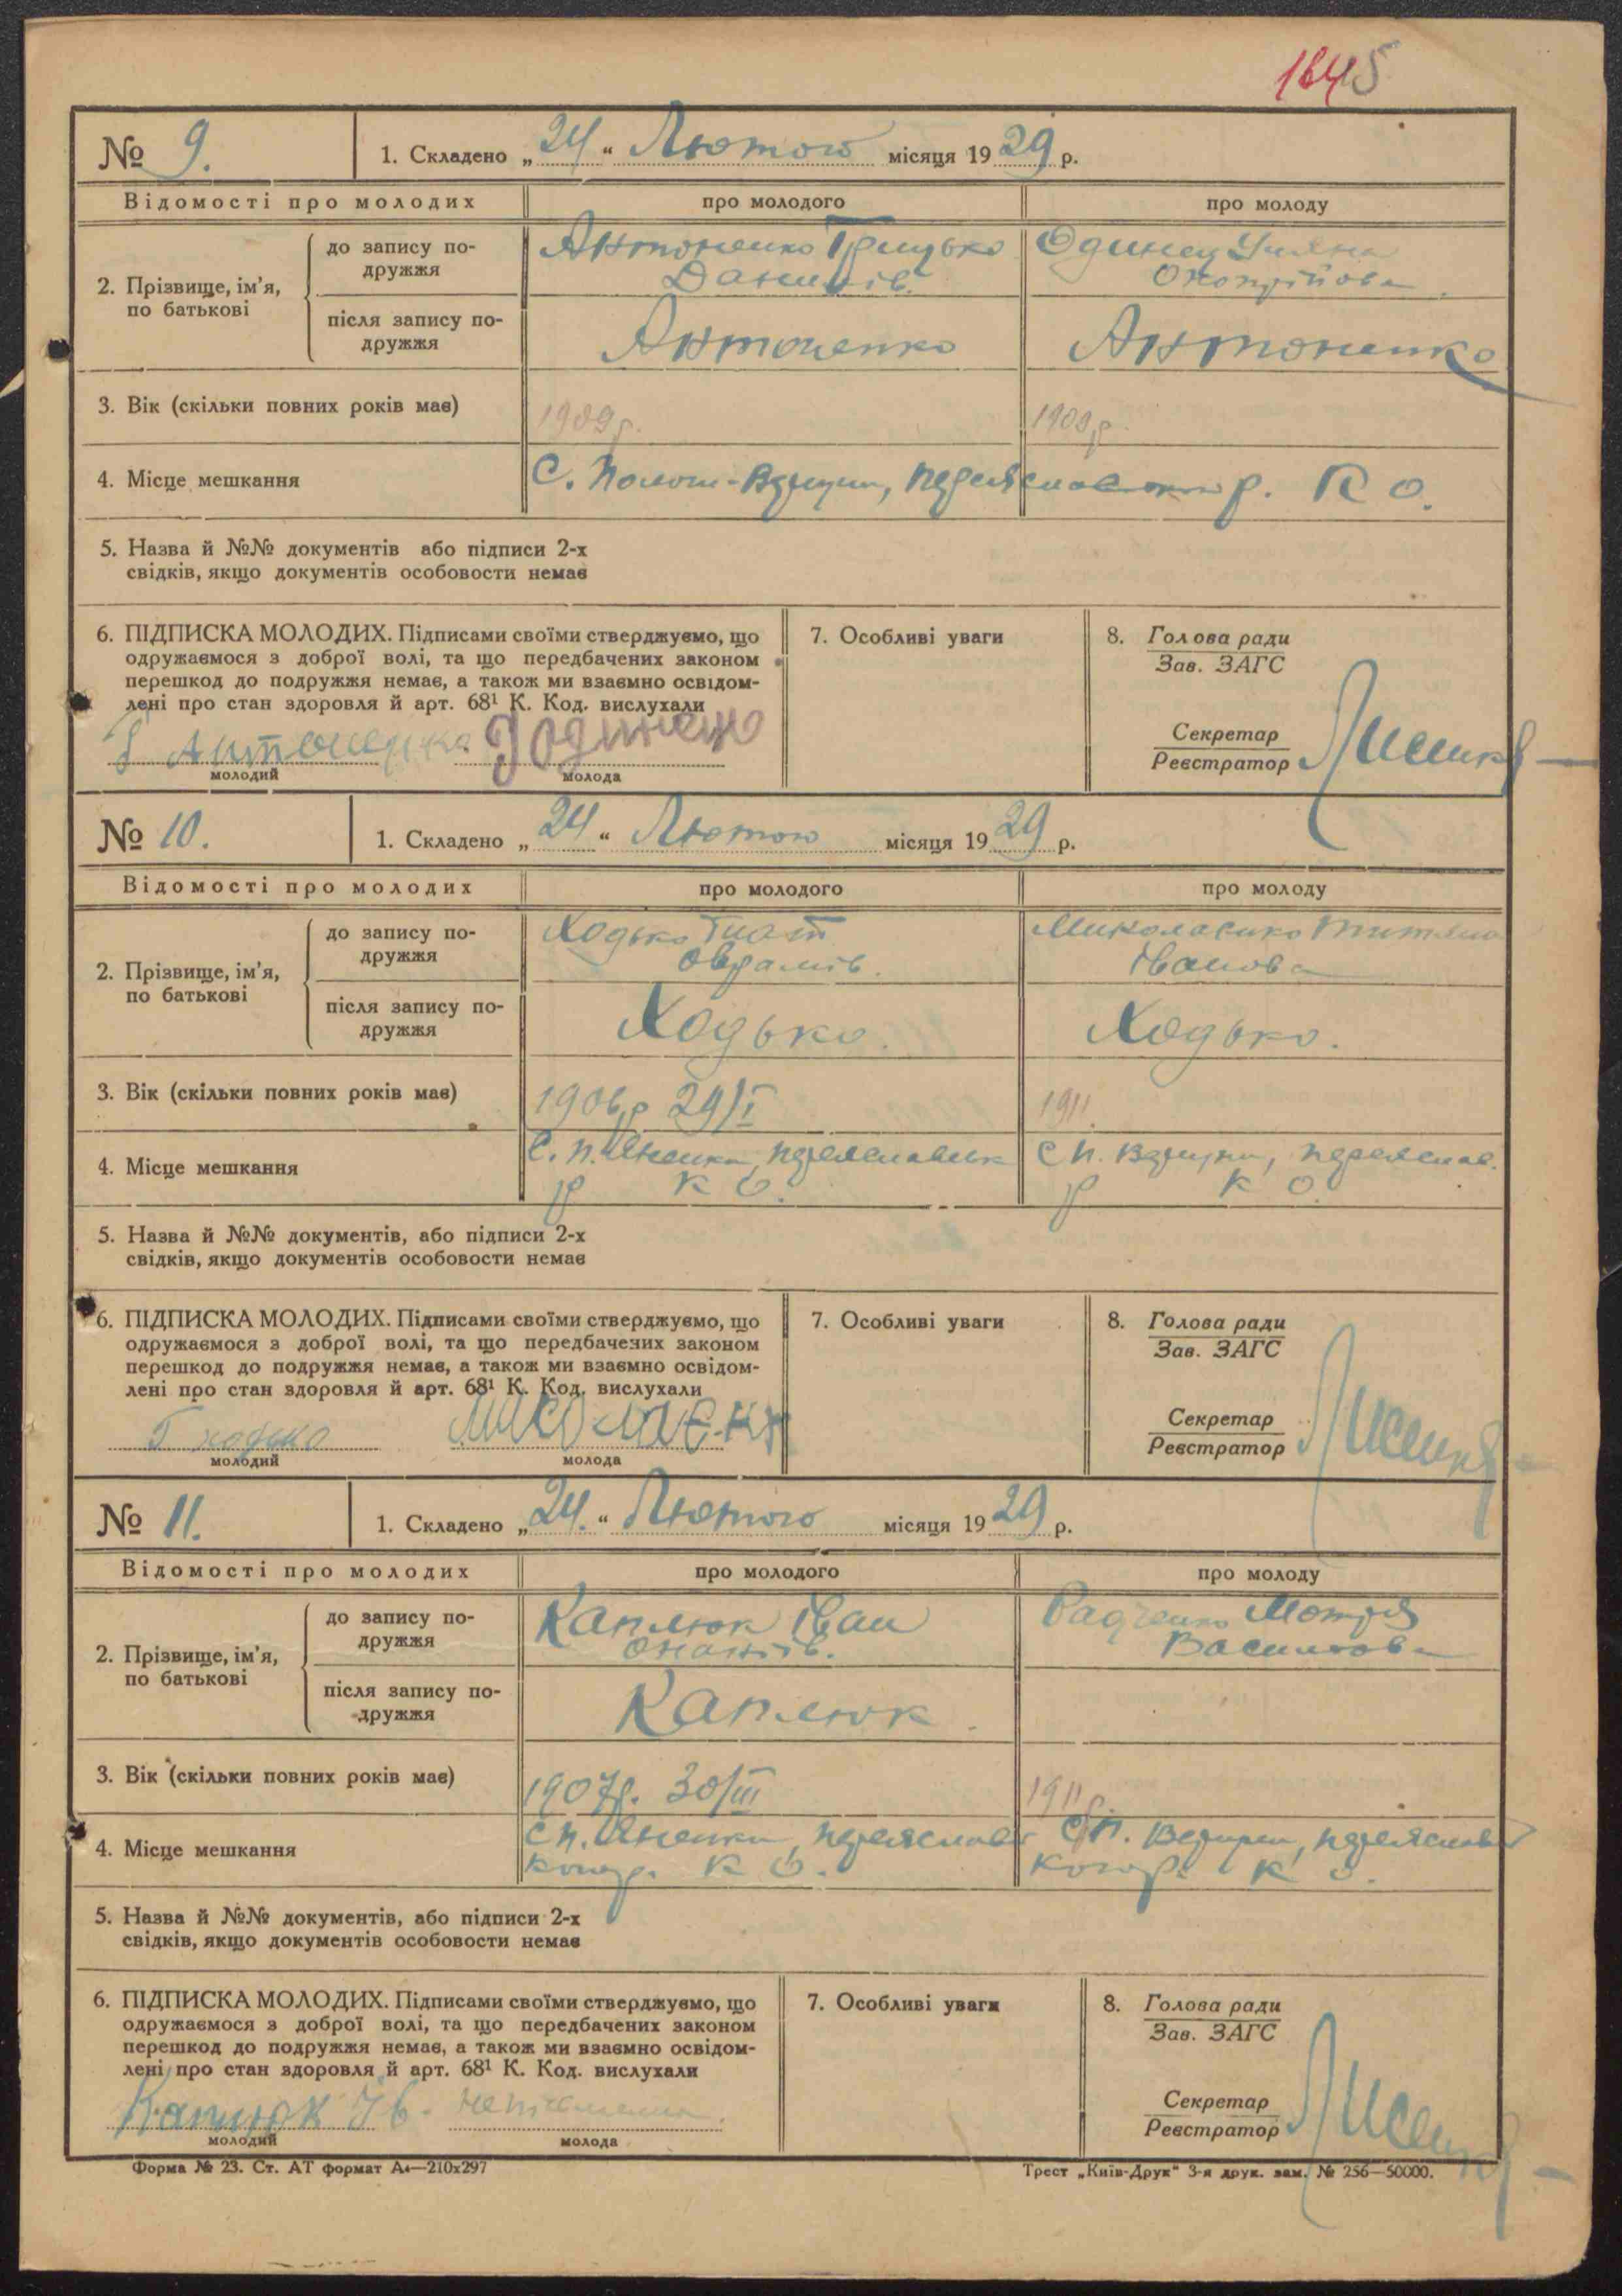 1645
№ 9.
1. Складено „24“ Лютого місяця 1929 р.
Відомості про молодих
про молодого
про молоду
2. Прізвище, ім'я, по батькові
до запису по-
дружжя
Антоненко Грицько
Данилів.
Одинец Уляна
після запису по-
дружжя
Антоненко
Антоненко
3. Вік (скільки повних років має)
1909 р.
1909 р.
4. Місце мешкання
С. Полог-Вергуни, Переяславськ р. К О.
5. Назва й №№ документів або підписи 2-х
свідків, якщо документів особовости немає
6. ПІДПИСКА МОЛОДИХ. Підписами своїми стверджуємо, що
одружаємося з доброї волі, та що передбачених законом
перешкод до подружжя немає, а також ми взаємно освідом-
лені про стан здоровля й арт. 68¹ К. Код. вислухали
Г Антоненко
молодий
молода
7. Особливі уваги
8. Голова ради
Зав. ЗАГС
Секретар
Реєстратор
№ 10.
1. Складено „24“ Лютого місяця 1929 р.
Відомості про молодих
про молодого
про молоду
2. Прізвище, ім'я,
по батькові
до запису по-
дружжя
Ходько Гнат
Оврамів.
Миколаенко
Іванова
після запису по-
дружжя
Ходько.
Ходько.
3. Вік (скільки повних років має)
1906 р 29/I
1911.
4. Місце мешкання
С. П. Яненки, Переяславськ
р К О.
С П. Вергуни, Переяслав.
р К О.
5. Назва й №№ документів, або підписи 2-х
свідків, якщо документів особовости немає
6. ПІДПИСКА МОЛОДИХ. Підписами своїми стверджуємо, що
одружаємося з доброї волі, та що передбачених законом
перешкод до подружжя немає, а також ми взаємно освідом-
лені про стан здоровля й арт. 68¹ К. Код. вислухали
Г Ходько
молодий
молода
7. Особливі уваги
8. Голова ради
Зав. ЗАГС
Секретар
Реєстратор
№ 11.
1. Складено „24.“ Лютого місяця 1929 р.
Відомості про молодих
про молодого
про молоду
2. Прізвище, ім'я,
по батькові
до запису по-
дружжя
Каплюк Іван
Ананіїв.
Радченко Мотря
Василіова
після запису по-
дружжя
Каплюк.
3. Вік (скільки повних років має)
1907 р. 30/III
1911 р.
4. Місце мешкання
С П. Яненки, Переяславс
К О.
С П. Вергуни, Переяслав
К О.
5. Назва й №№ документів, або підписи 2-х
свідків, якщо документів особовости немає
6. ПІДПИСКА МОЛОДИХ. Підписами своїми стверджуємо, що
одружаємося з доброї волі, та що передбачених законом
перешкод до подружжя немає, а також ми взаємно освідом-
лені про стан здоровля й арт. 68¹ К. Код. вислухали
Каплюк Ів.
неписьменна.
молодий
молода
7. Особливі уваги
8. Голова ради
Зав. ЗАГС
Секретар
Реєстратор
Форма № 23. Ст. АТ формат А₄—210х297
Трест „Київ-Друк“ 3-я друк. зам. № 256—50000.